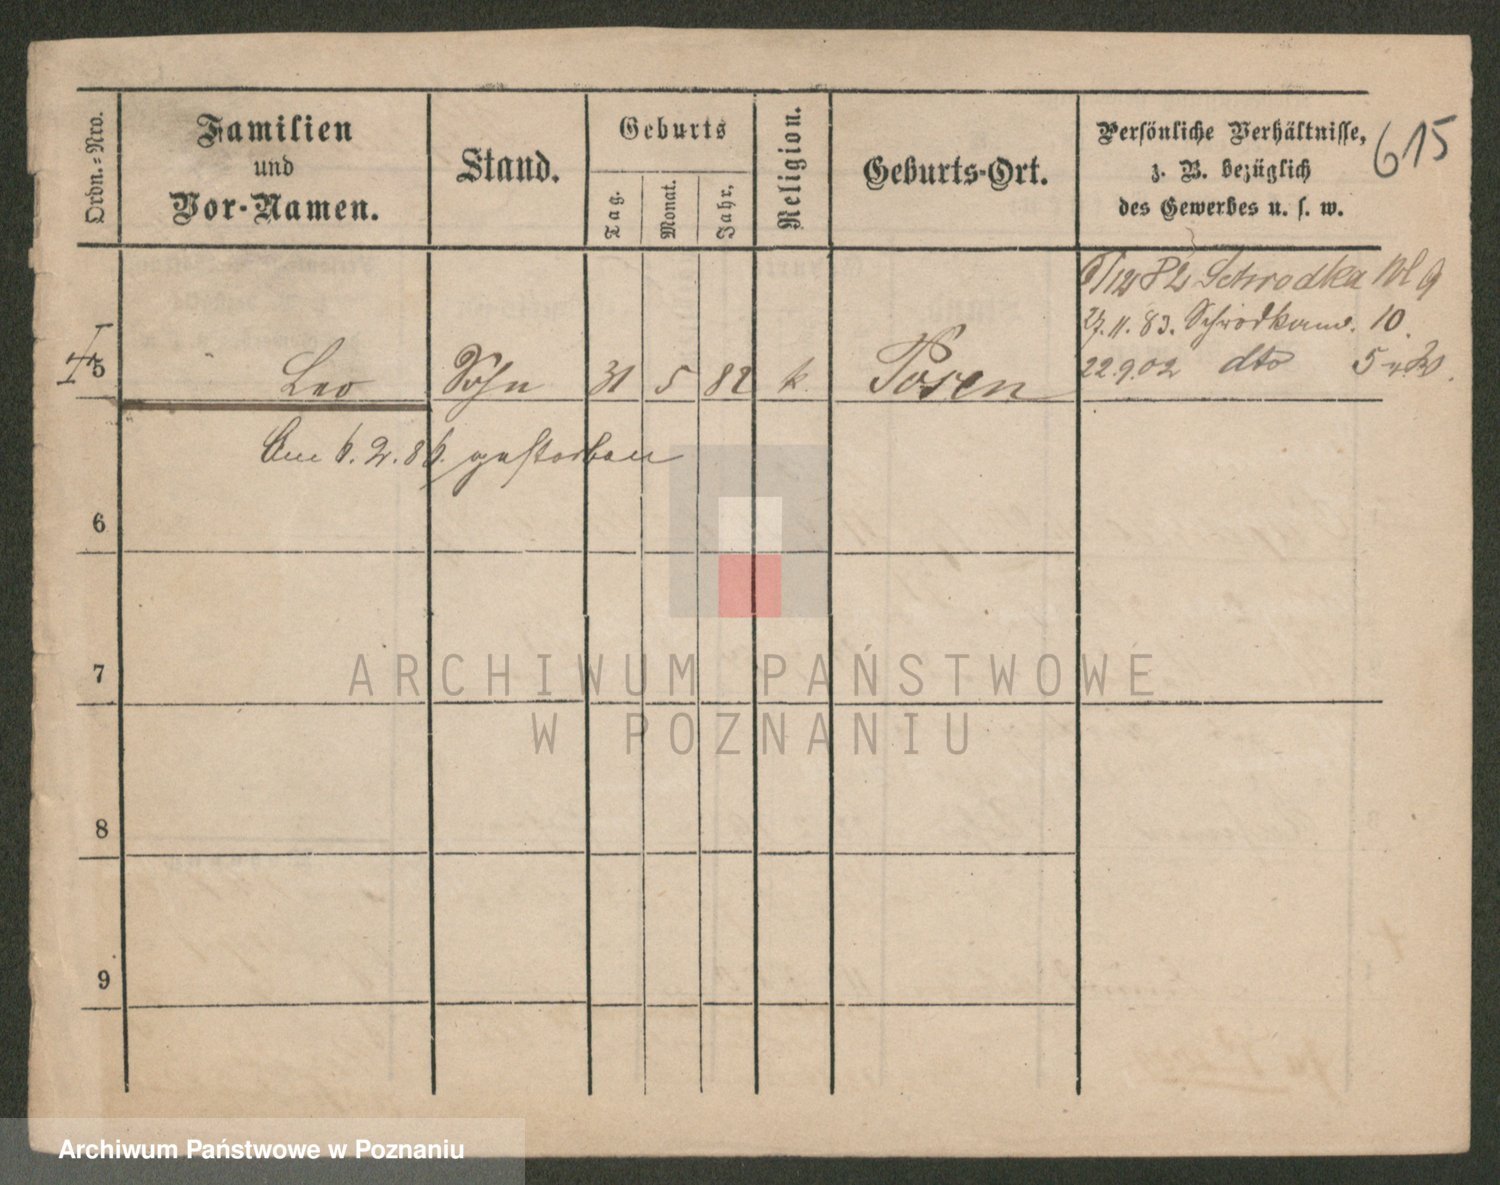 Ordn.=Nro.
Familien
und
Vor-Namen.
Stand.
Geburts
Tag.
Monat.
Jahr.
Religion.
Geburts-Ort.
Persönliche Verhältnisse,
z. B. bezüglich
des Gewerbes u. s. w.
615
6/12 82 Schrodka
27.11.83. 10.
5 Leo Sohn 31 5 82 k. Posen 22.9.02 dto 5
Am 6.2.86. gestorben
6
7
8
9
ARCHIWUM PAŃSTWOWE
W POZNANIU
Archiwum Państwowe w Poznaniu